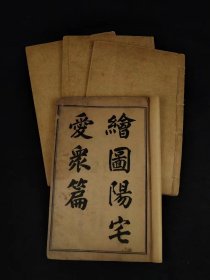 繪圖陽宅
愛衆篇